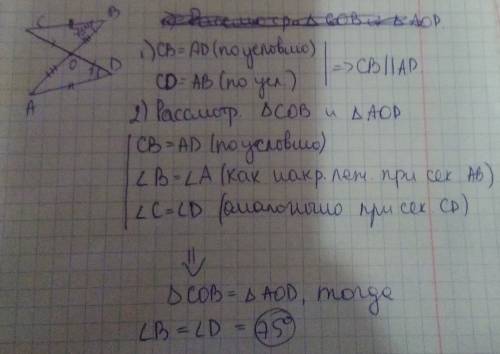 Рассмотр. Δ COB и Δ AOD.
C B 75° O ? D A
1) CB = AD (по условию)
CD = AB (по усл.) | => CB || AD
2) Рассмотр. ΔCOB и ΔAOD
CB = AD (по условию)
∠B = ∠A (как накр. леж. при сек AB)
∠C = ∠D (аналогично при сек CD)
⇓
ΔCOB = ΔAOD, тогда
∠B = ∠D = 75°